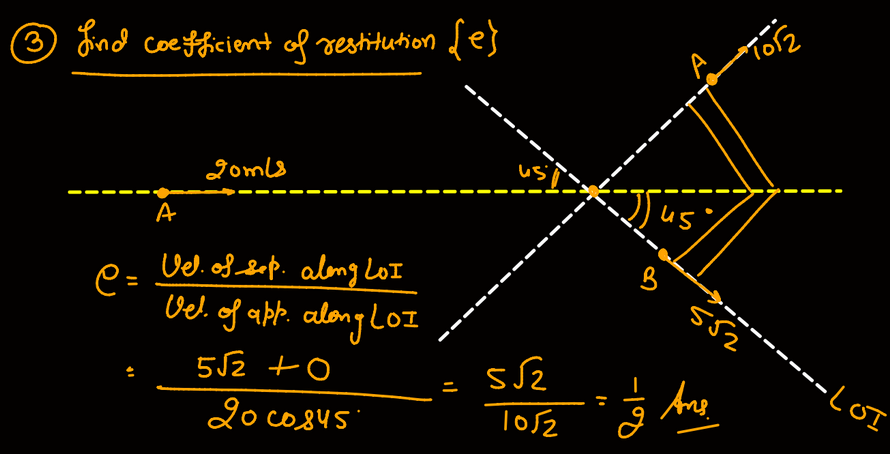 ③ find coefficient of restitution {e}
A 10√2
20m/s
45°
A
45°
B
5√2
LOI
e = Vel. of sep. along LOI / Vel. of app. along LOI
= 5√2 + 0 / 20 cos45° = 5√2 / 10√2 = 1/2 Ans.